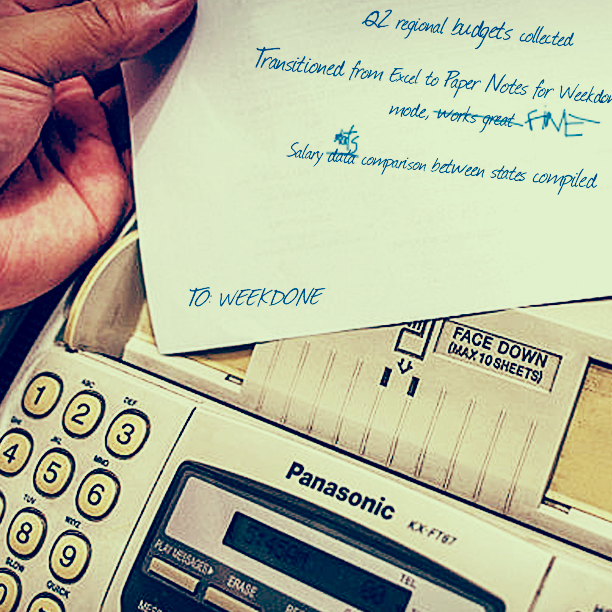 Q2 regional budgets collected
Transitioned from Excel to Paper Notes for Weekdon
mode, works great FINE
Salary data comparison between states compiled
TO: WEEKDONE
FACE DOWN
(MAX 10 SHEETS)
1
ABC
2
DEF
3
4
JKL
5
MNO
6
TUV
8
WXYZ
9
0
SLOW
QUICK
Panasonic
KX-FT67
PLAY MESSAGES
ERASE
TEL